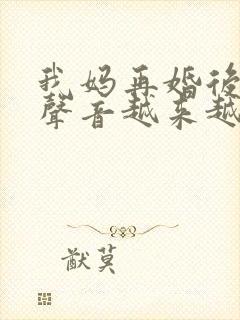 我妈再婚後
聲音越来越
猷莫